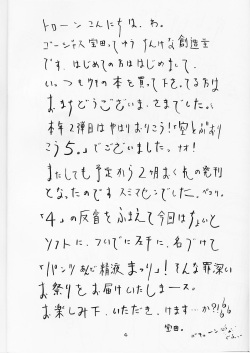 トローン こんにちは、わ。
ゴージャス宝田ってゆう すんげな創造主
です、はじめての方ははじめまして、
い、つもワタの本を買って下さってる方は
ありますどうございま、さまでした。
本年2弾目はやはりおりこう!「空とぶおり
こう5。」でございました。ナオ!
またしても予定から2ヶ月おくれの発刊
となったのです スミマセンでした、ペコリ。
「4」の反省をふまえて今回はちょいと
ソフトに、ついでに派手に、名づけて
「パンツあんど精液 まっり!」そんな罪深い
お祭りをお届けいたしまース。
お楽しみ下、いただき、けます…か?!
宝田。
4